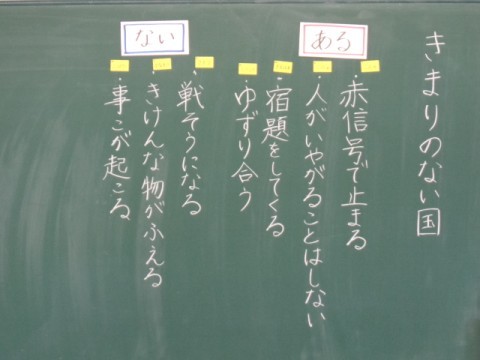 きまりのない国
ある
・赤信号で止まる
・人がいやがることはしない
・宿題をしてくる
・ゆずり合う
ない
・戦そうになる
・きけんな物がふえる
・事こが起こる